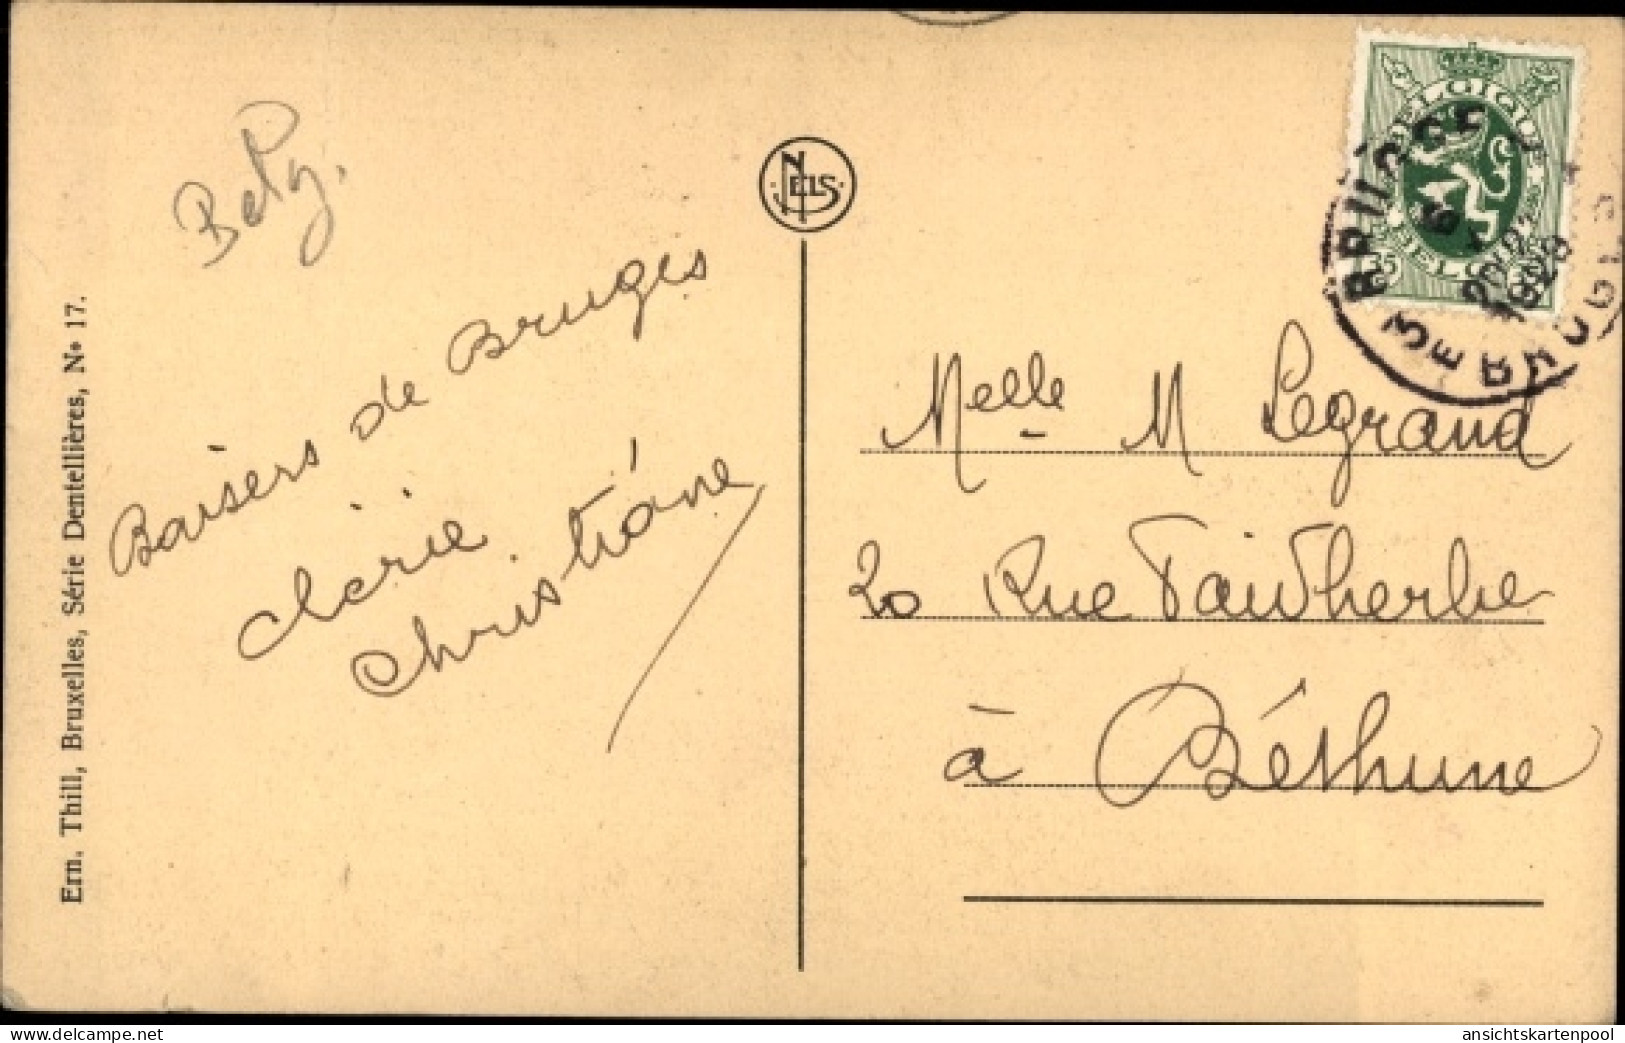 Belg.
NELS
Baisers de Bruges
Clérie
Christiane
Ern. Thill, Bruxelles, Série Dentellières, No 17.
BELGIQUE
35
BELGIË
BRUGGE
3E BRUGES 3
6
1929
Melle M Legrand
20 Rue Faidherbe
à Béthune
www.delcampe.net
ansichtskartenpool